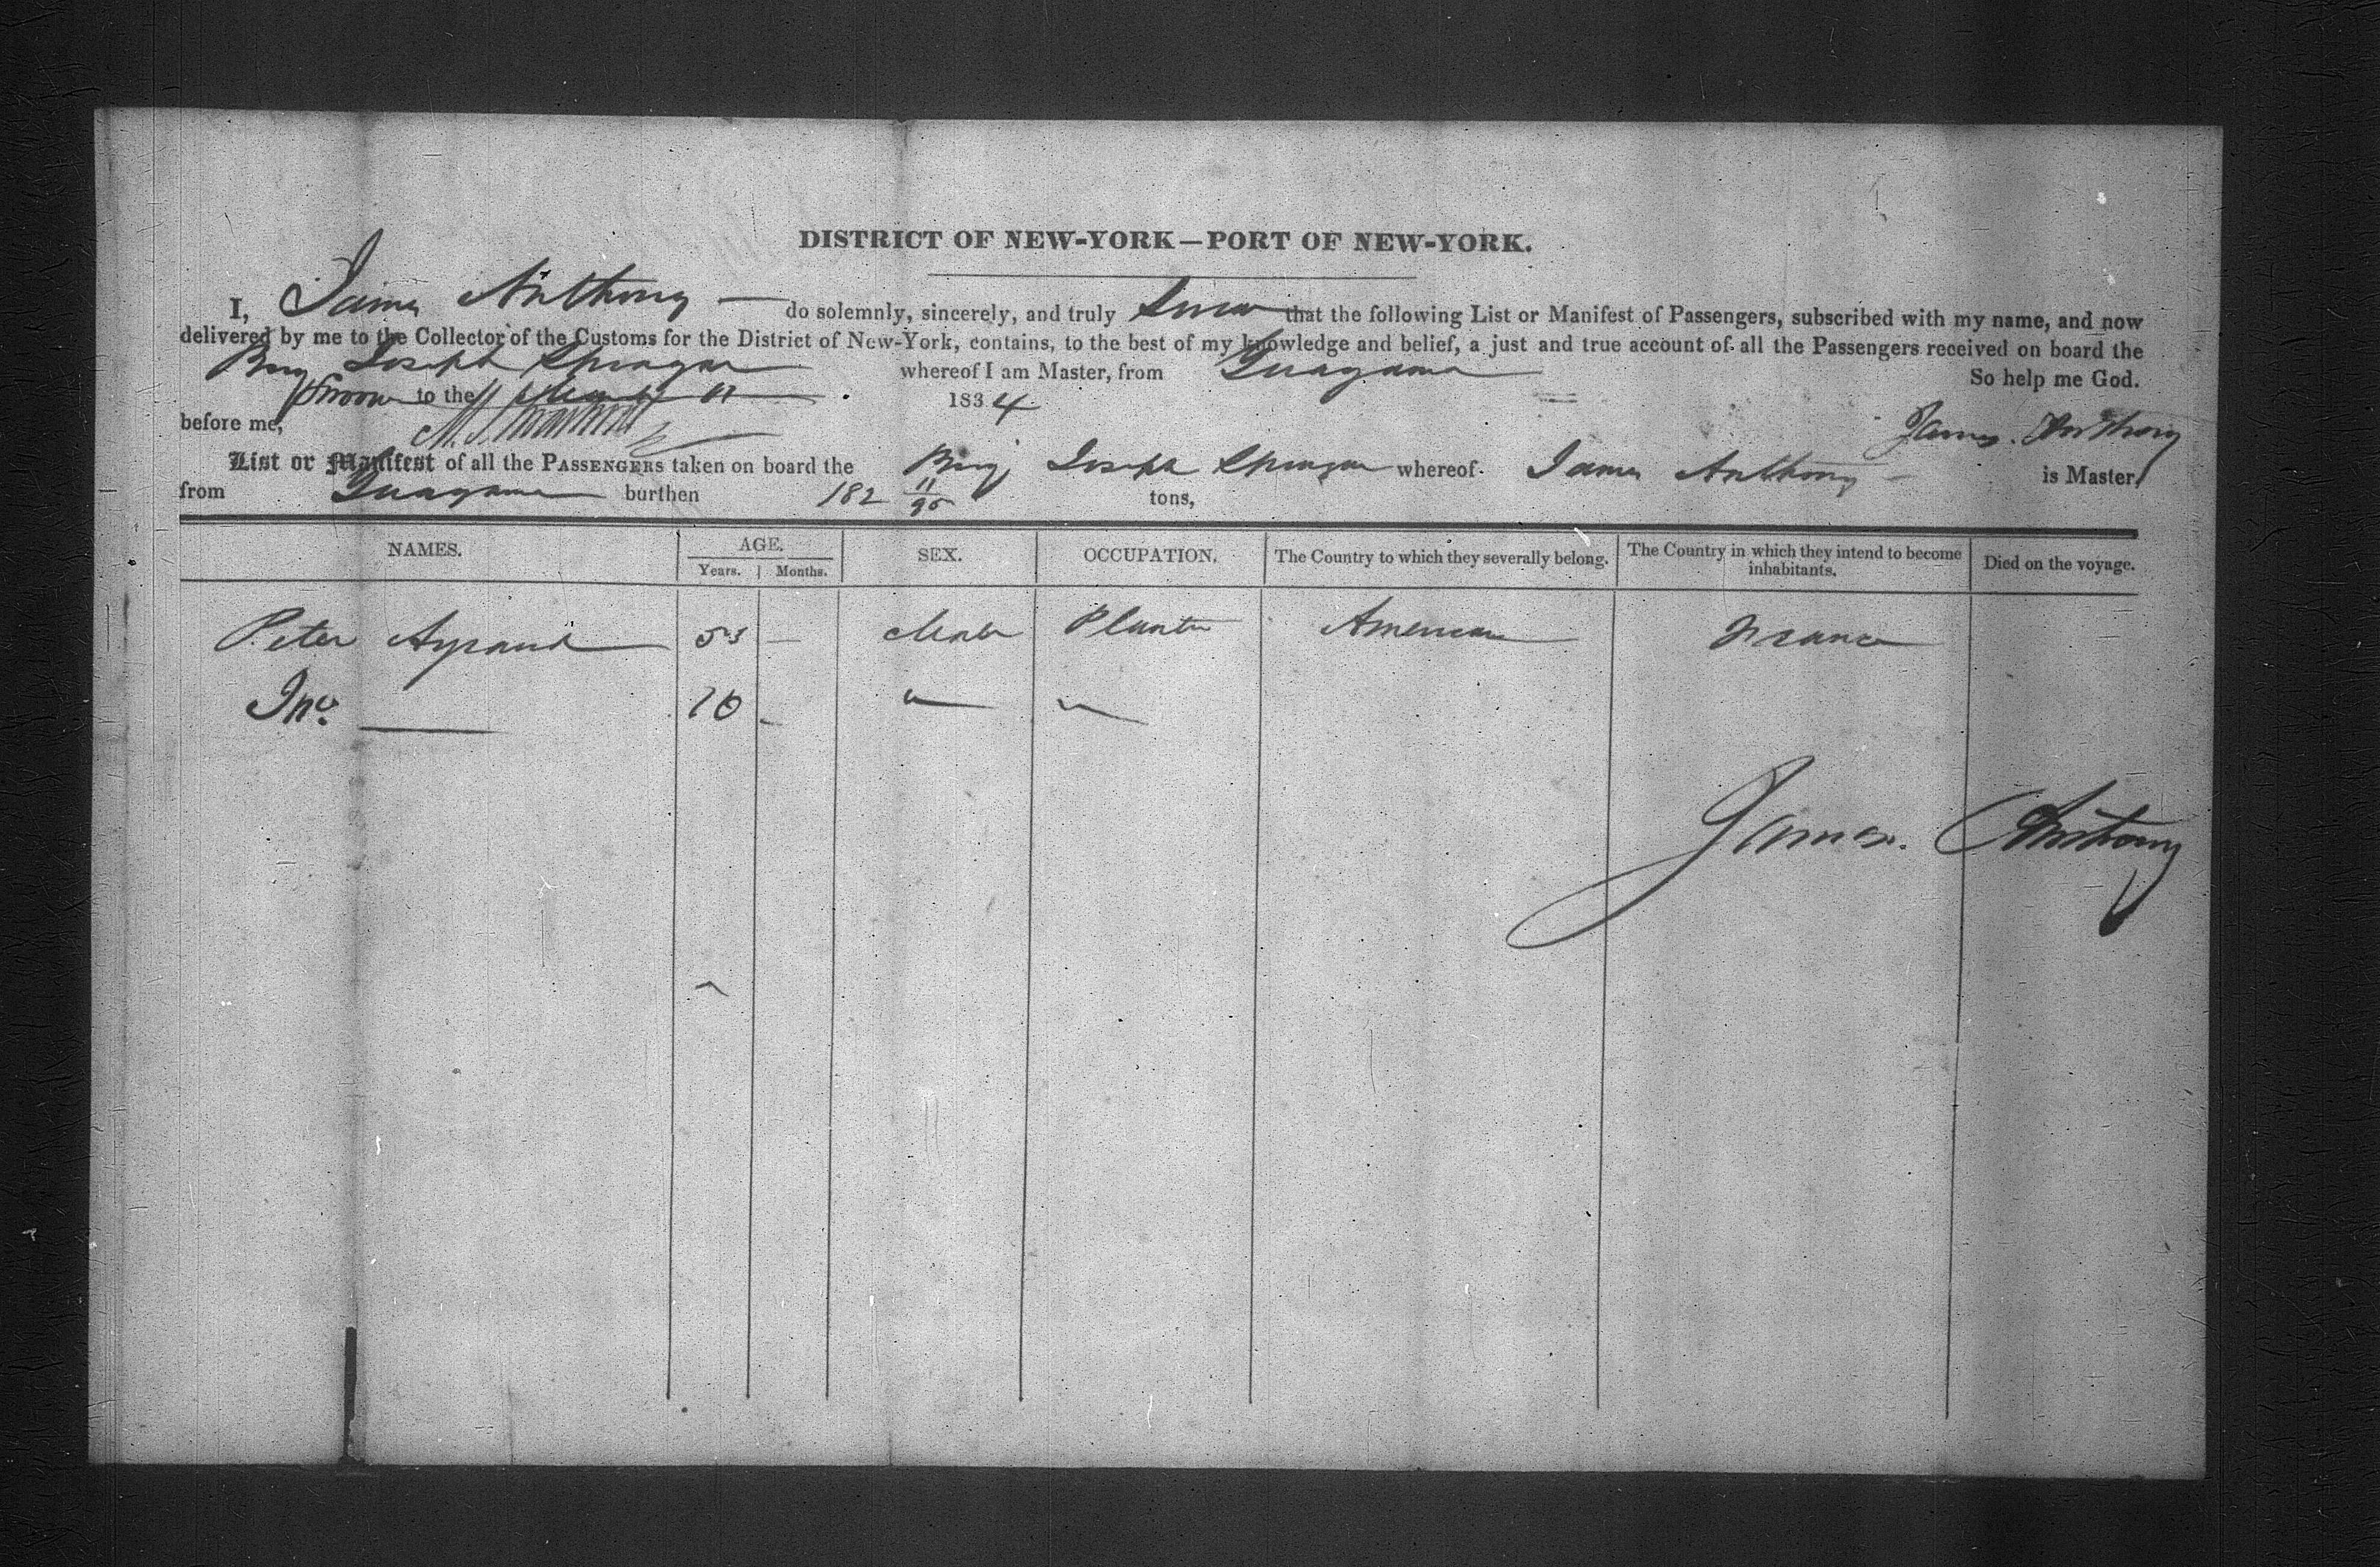 DISTRICT OF NEW-YORK—PORT OF NEW-YORK.
I, James Anthony — do solemnly, sincerely, and truly Swear that the following List or Manifest of Passengers, subscribed with my name, and now
delivered by me to the Collector of the Customs for the District of New-York, contains, to the best of my knowledge and belief, a just and true account of all the Passengers received on board the
Brig Joseph Sprague whereof I am Master, from Guayama So help me God.
Sworn to the 1834
before me, James Anthony
List or Manifest of all the PASSENGERS taken on board the Brig Joseph Sprague whereof James Anthony is Master,
from Guayama burthen 182 11/95 tons,
NAMES. AGE. Years. Months. SEX. OCCUPATION. The Country to which they severally belong. The Country in which they intend to become inhabitants. Died on the voyage.
Peter Ayraud 53 — Male Planter American France
Jno. — 16 - " "
James Anthony